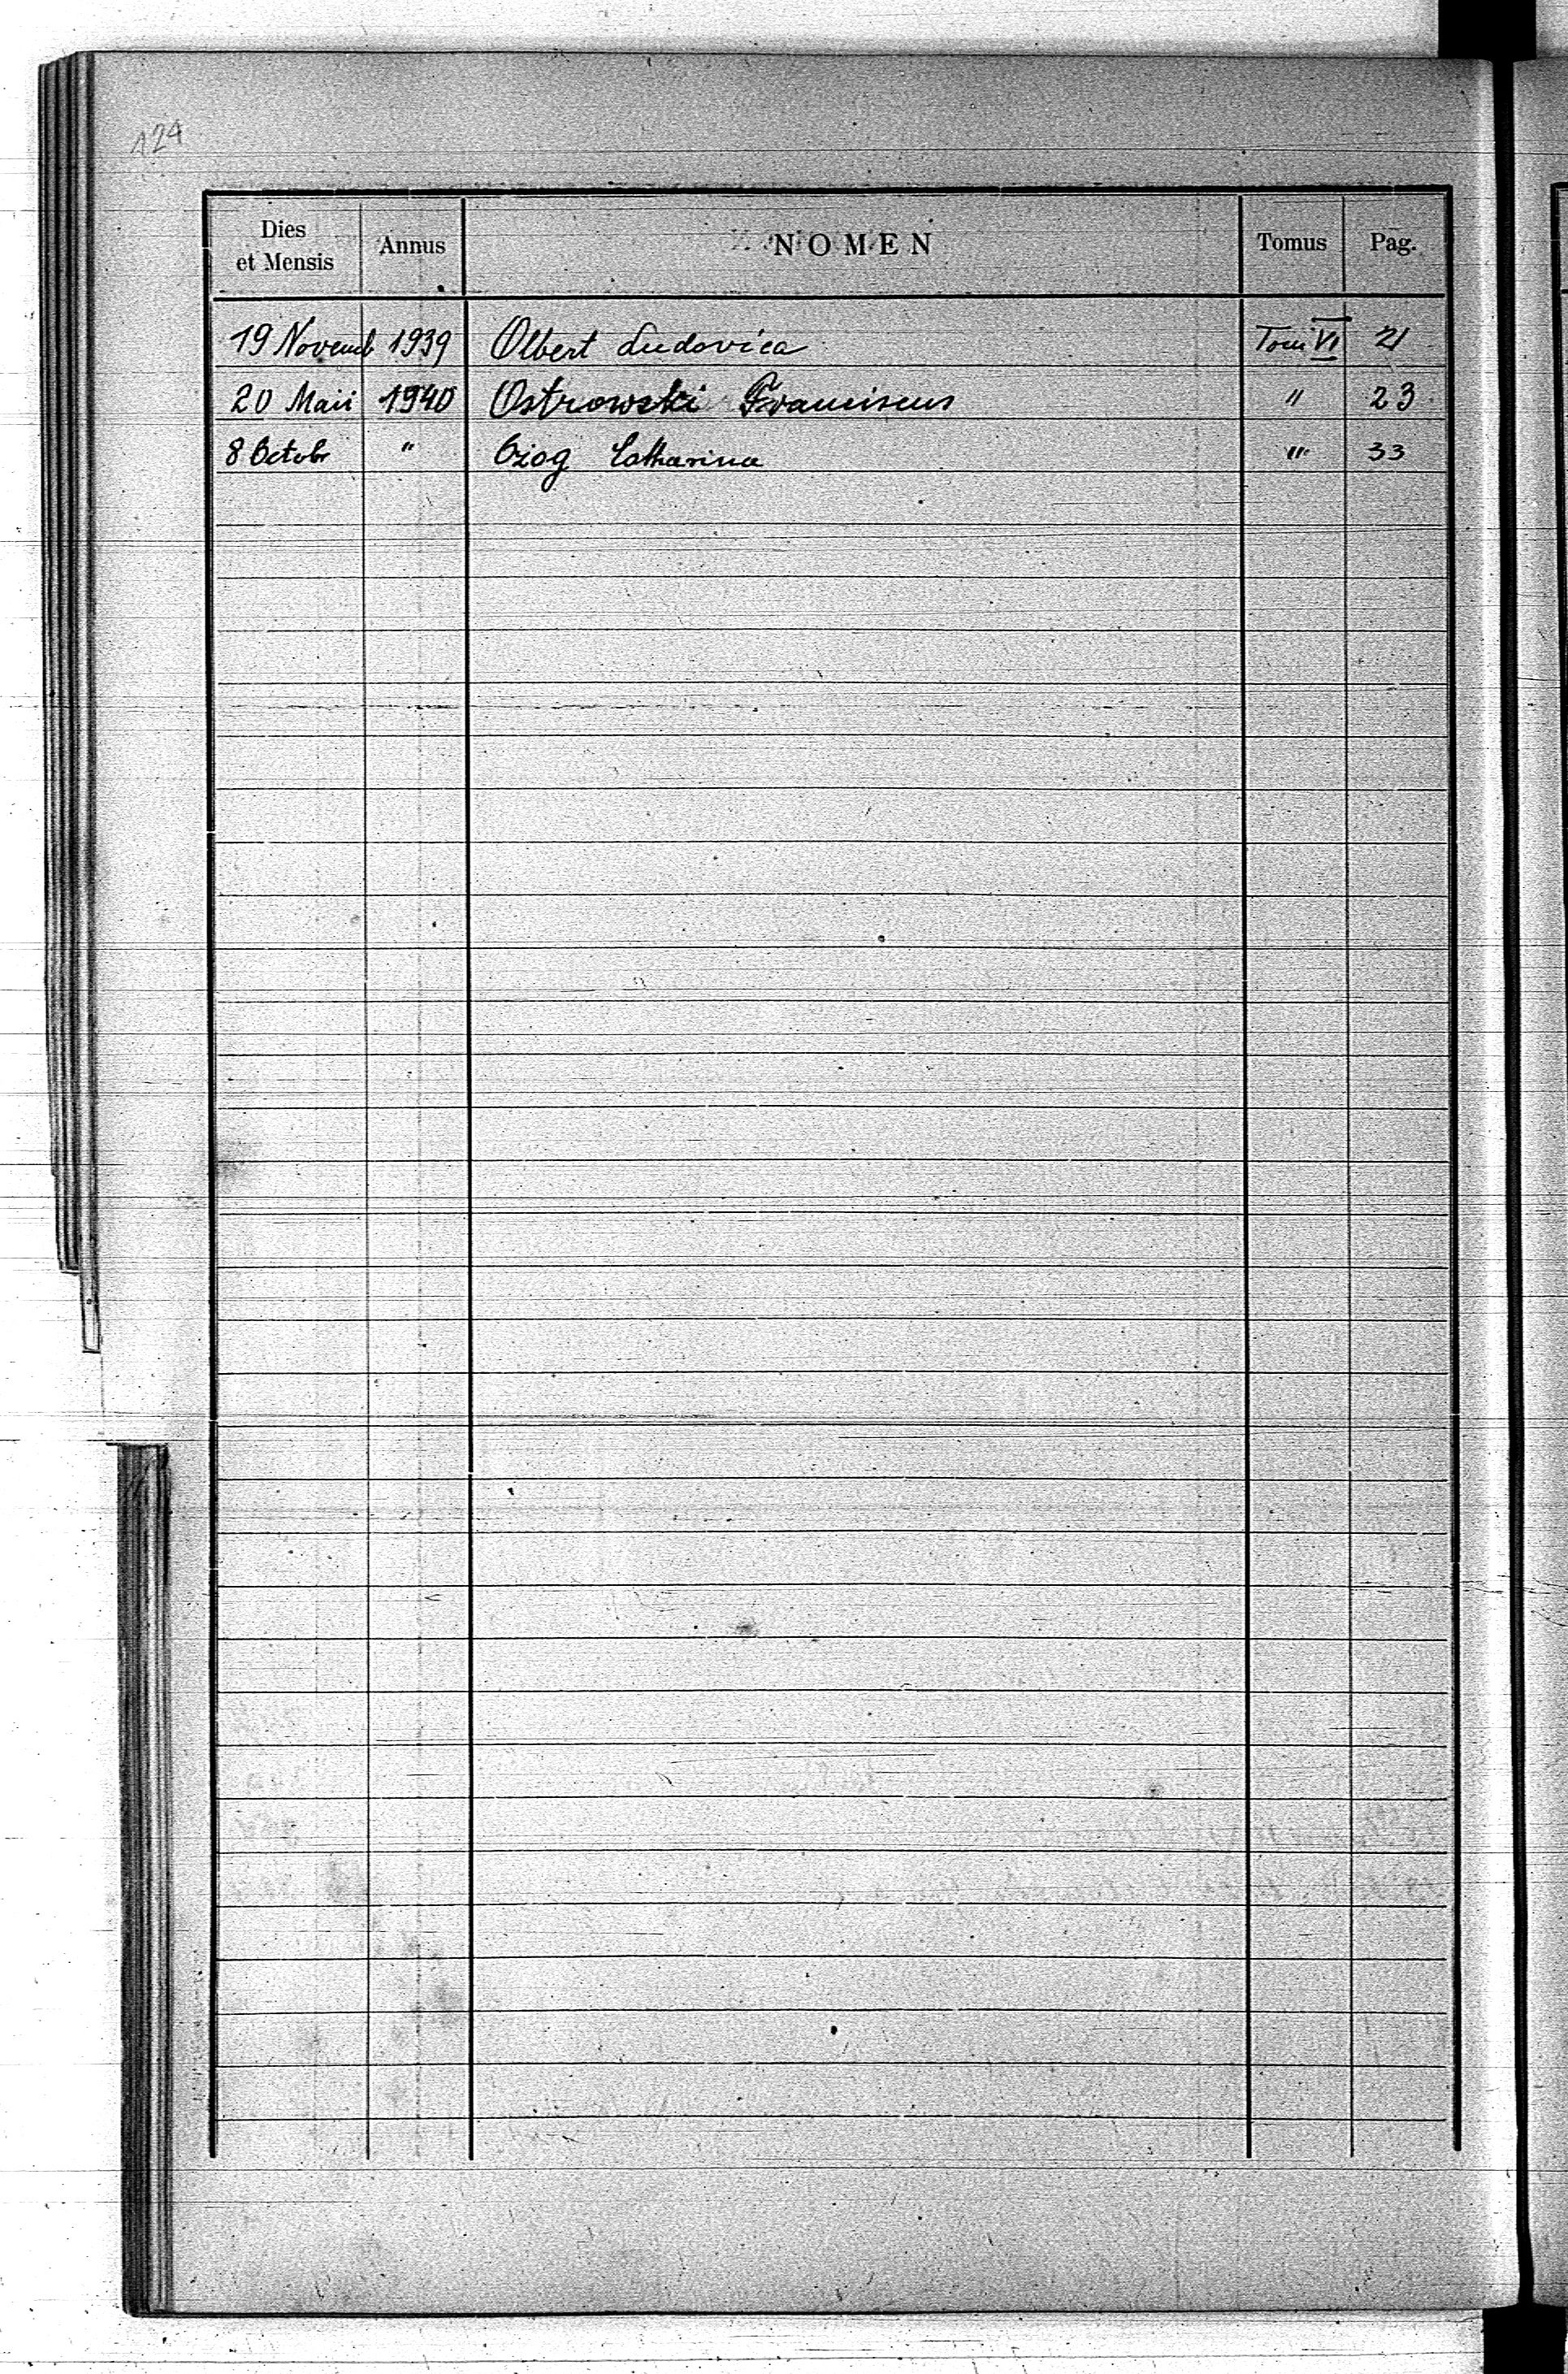 124
Dies et Mensis Annus NOMEN Tomus Pag.
19 Novemb 1939 Olbert Ludovica Tom VI 21
20 Maii 1940 Ostrowski Franciscus " 23
8 Octobr " Oziog Catharina " 33